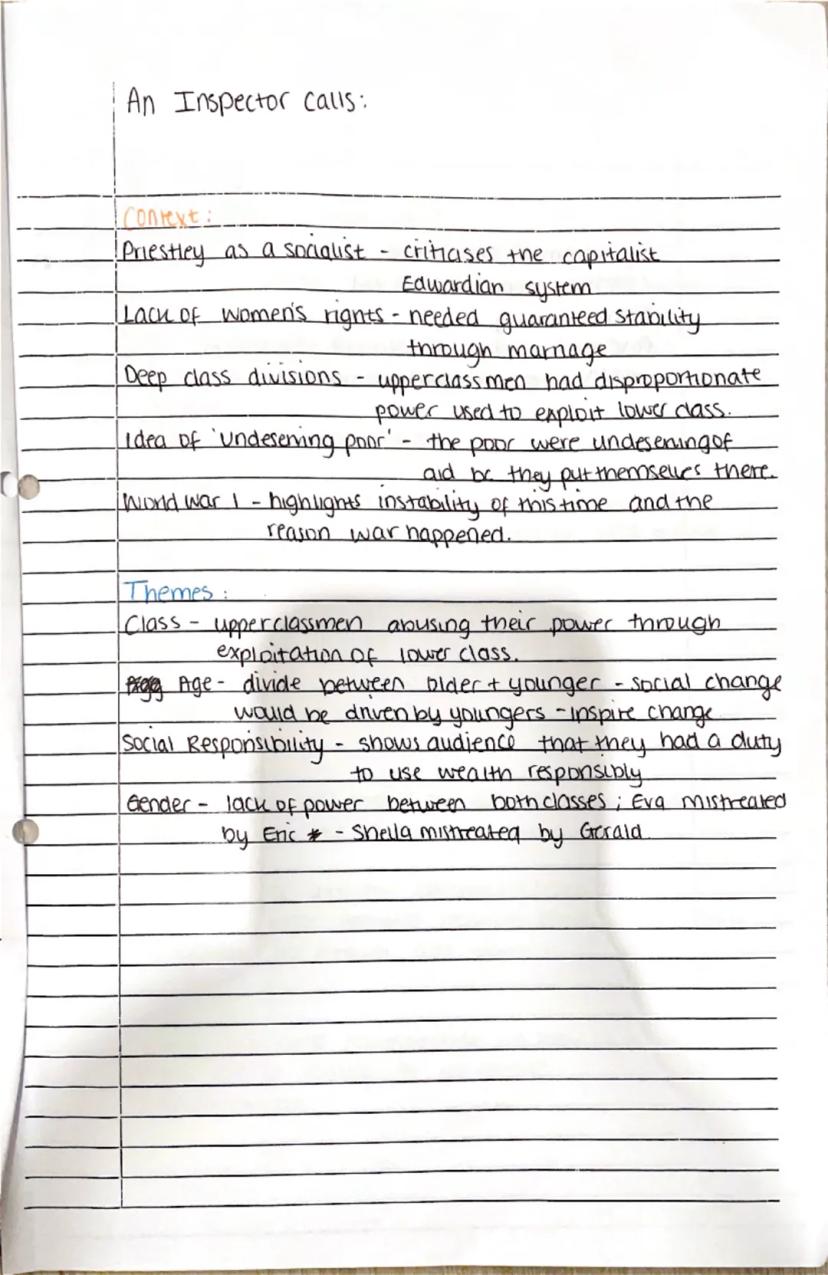 An Inspector Calls:
Context:
Priestley as a socialist - criticises the capitalist
Edwardian system
Lack of women's rights - needed guaranteed stability
through marriage
Deep class divisions - upperclass men had disproportionate
power used to exploit lower class.
Idea of 'undeserving poor' - the poor were undeserving of
aid bc they put themselves there.
World War 1 - highlights instability of this time and the
reason war happened.
Themes:
Class - upperclassmen abusing their power through
exploitation of lower class.
Age - divide between older + younger - social change
would be driven by youngers - inspire change
Social Responsibility - shows audience that they had a duty
to use wealth responsibly
Gender - lack of power between both classes; Eva mistreated
by Eric * - Sheila mistreated by Gerald